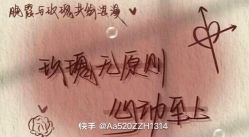 晚霞与玫瑰共倾浪漫
玫瑰无原则
心动至上
快手 @Aa520ZZH1314